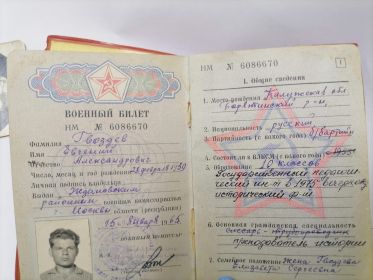 ВОЕННЫЙ БИЛЕТ
НМ № 6086670
Фамилия Гвоздев
Имя Евгений
Отчество Александрович
Число, месяц и год рождения
Личная подпись владельца
Выдан Ждановским
районным военным комиссариатом
Москвы области (республики)
15 января 1965
Военный комиссар
НМ № 6086670
1
I. Общие сведения
1. Место рождения Калужская обл
р-н,
2. Национальность русский
3. Партийность (с какого года) б/партийн
4. Состоял ли в ВЛКСМ (с какого года) 1955
5. Образование 10 классов
Государственный педагоги
ческий ин-т в 1975
исторический ф-т
6. Основная гражданская специальность
преподаватель истории
7. Семейное положение жена Гвоздева
Елизавета Сергеевна